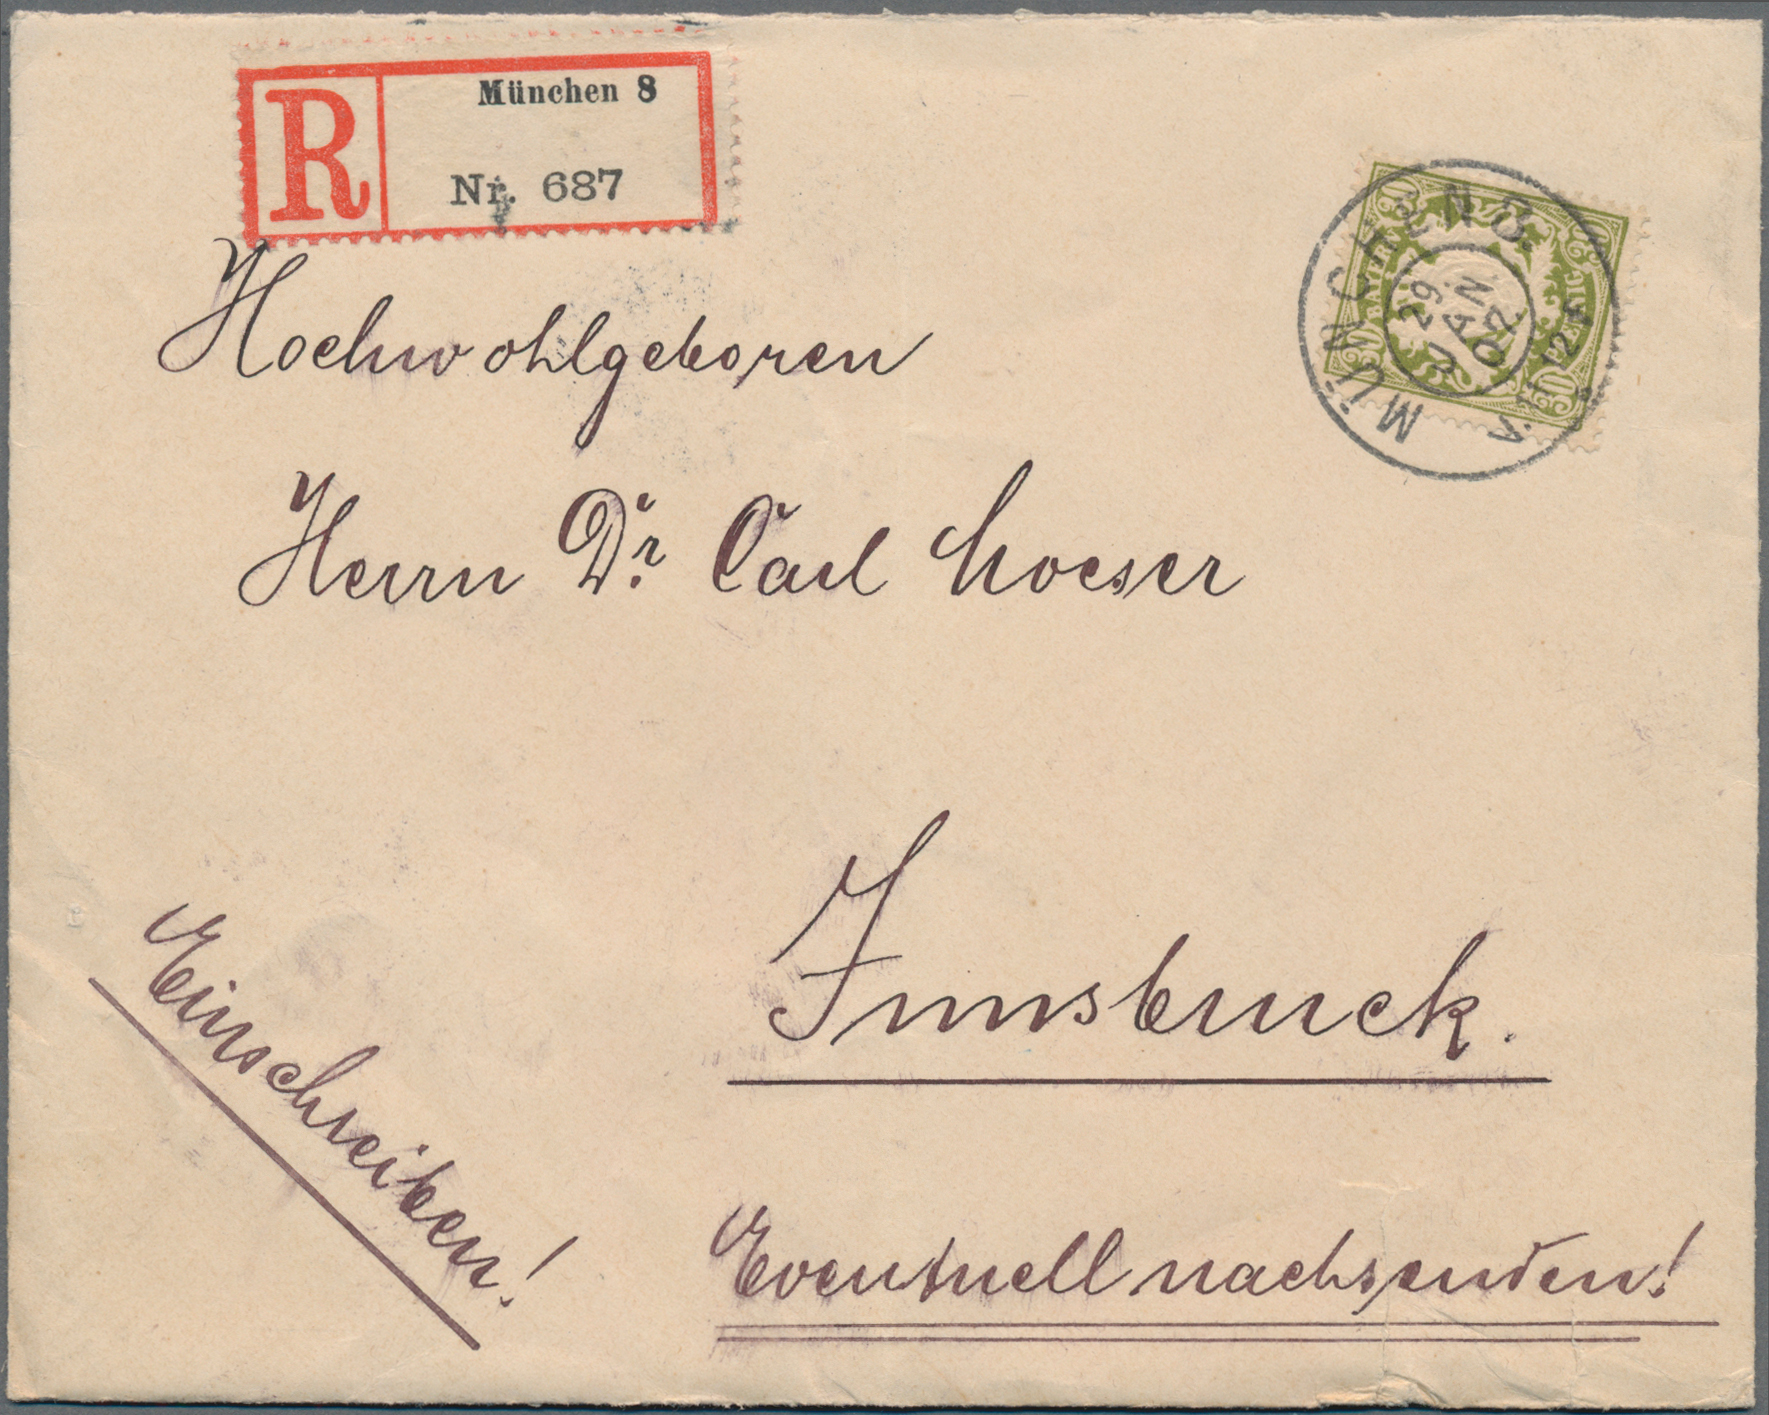 R
München 8
Nr. 687
MÜNCHEN 8.
29
JAN.
02.
V. 11-12
BAYERN
50
Hochwohlgeboren
Herrn Dr. Carl Moeser
Innsbruck.
Einschreiben!
Eventuell nachsenden!